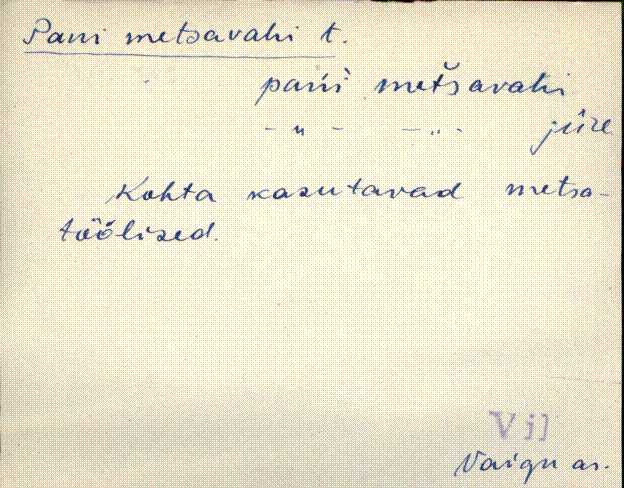 Pani metsavahi t.
pańi metšavahi
- " - - " - jüre
Kohta kasutavad metsa-
töölised.
Vjl
Vaigu as.